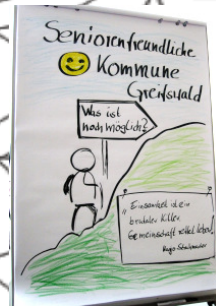 Seniorenfreundliche
Kommune
Greifswald
Was ist
noch möglich?
"Einsamkeit ist ein
brutaler Killer
Gemeinschaft rettet Leben!